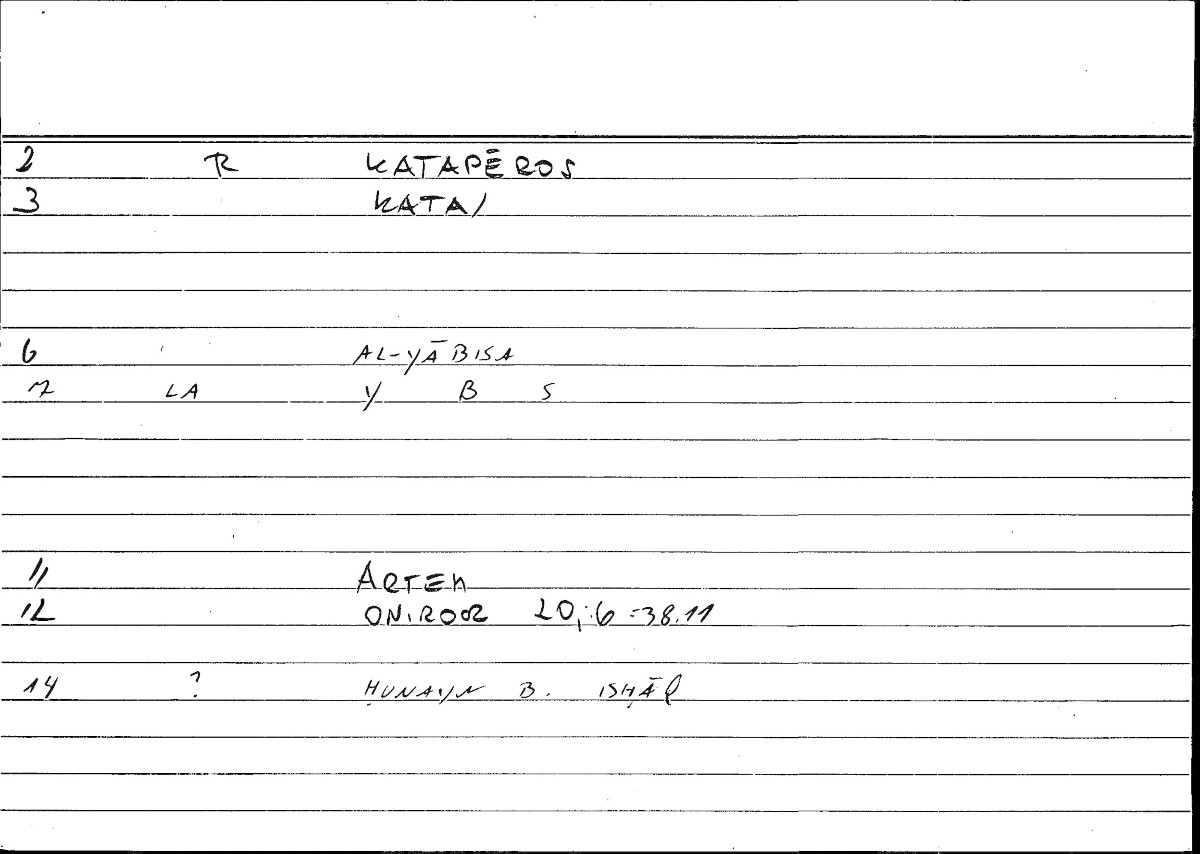 2 R KATAPĒROS
3 KATA/
6 AL-YĀBISA
7 LA Y B S
11 ARTEM
12 ONIROCR 20,:6 =38.11
14 ? ḤUNAYN B. ISḤĀQ